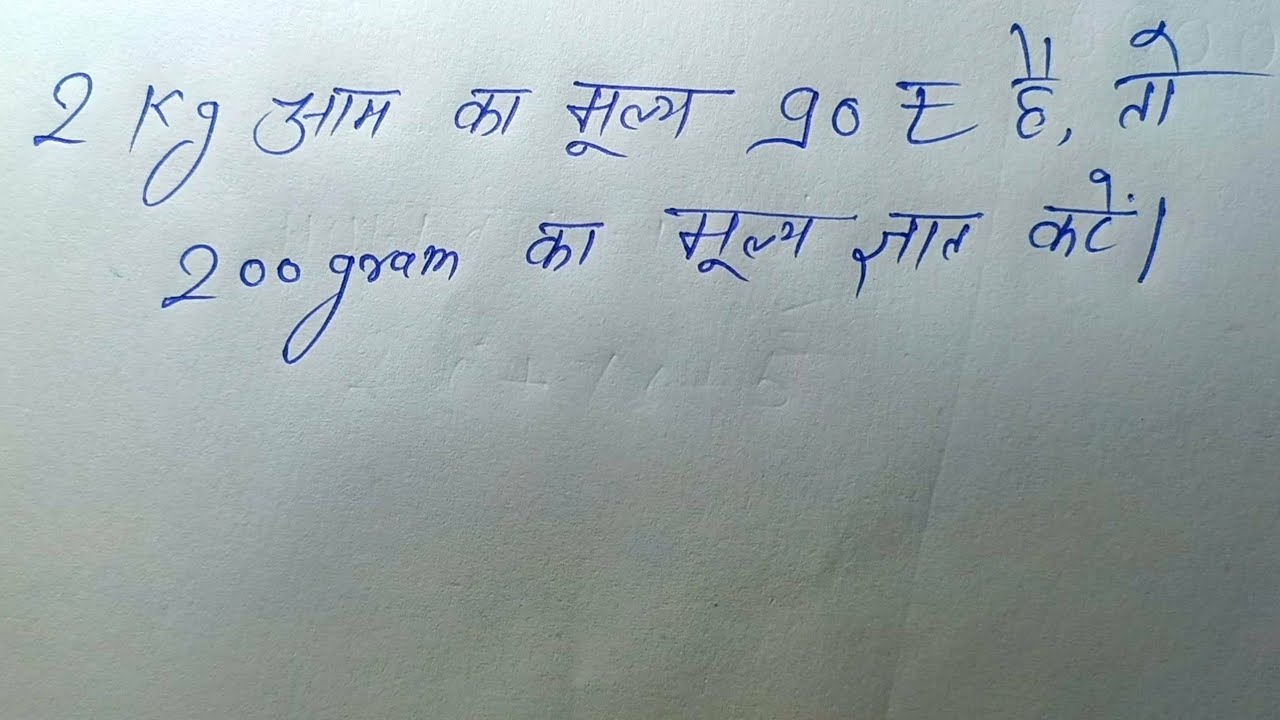 2 Kg आम का मूल्य 90 ₹ है, तो
200 gram का मूल्य ज्ञात करें।